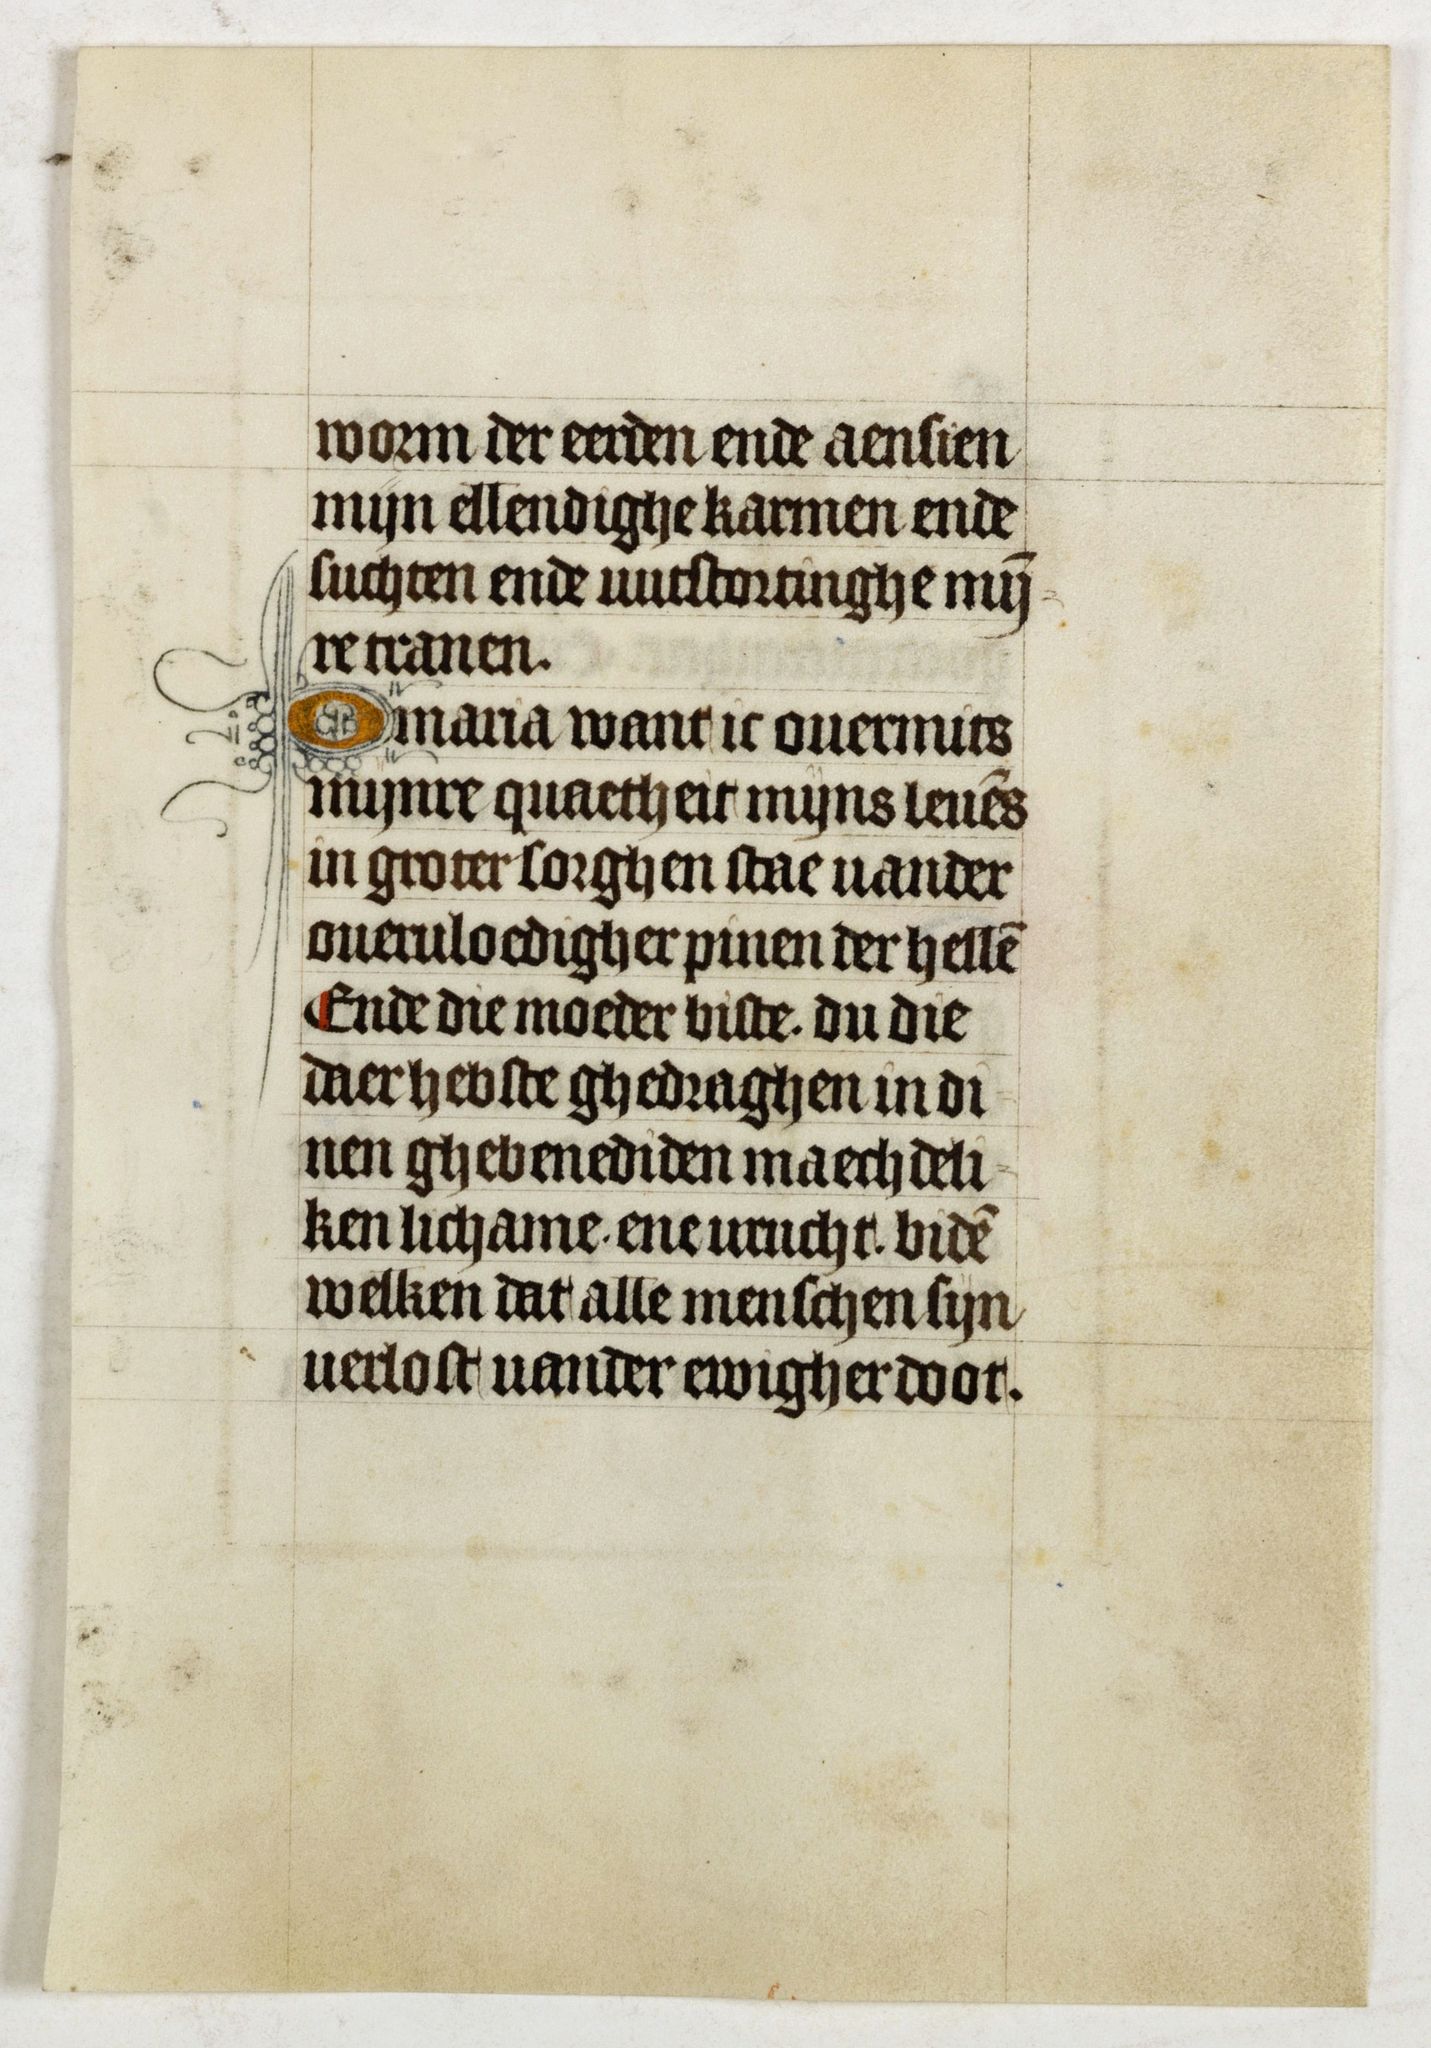 worm der eerden ende aensien
mijn ellendighe karmen ende
suchten ende uutstortinghe mij̄-
re tranen.
O maria want ic ouermits
mijnre quaetheit mijns leuēs
in groter sorghen stae uander
oueruloedigher pinen der hellē
Ende die moeder biste. du die
daer hebste ghedraghen in di-
nen ghebenediden maechdeli-
ken lichame. ene urucht. bidē
welken dat alle menschen sijn
uerlost uander ewigher doot.